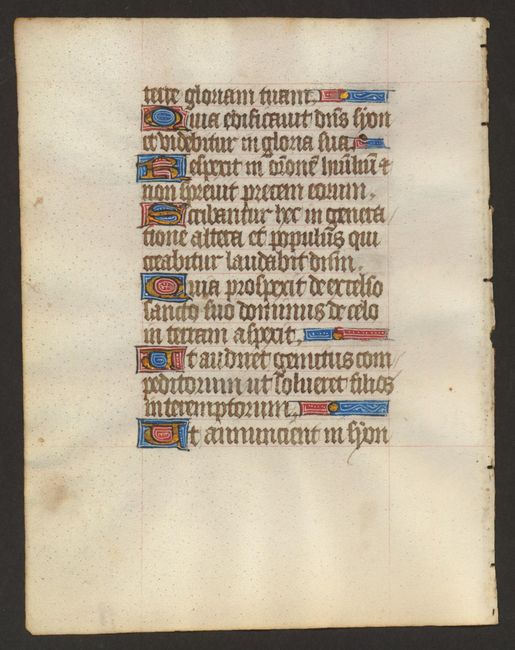 terre gloriam tuam.
Quia edificavit dn̄s syon
et videbitur in gloria sua.
Respexit in or̄onē humiliū et
non sprevit precem eorum.
Scribantur hec in genera
tione altera et populus qui
creabitur laudabit dn̄m.
Quia prospexit de excelso
sancto suo dominus de celo
in terram aspexit.
Ut audiret gemitus com
peditorum ut solveret filios
interemptorum.
Ut annuncient in syon